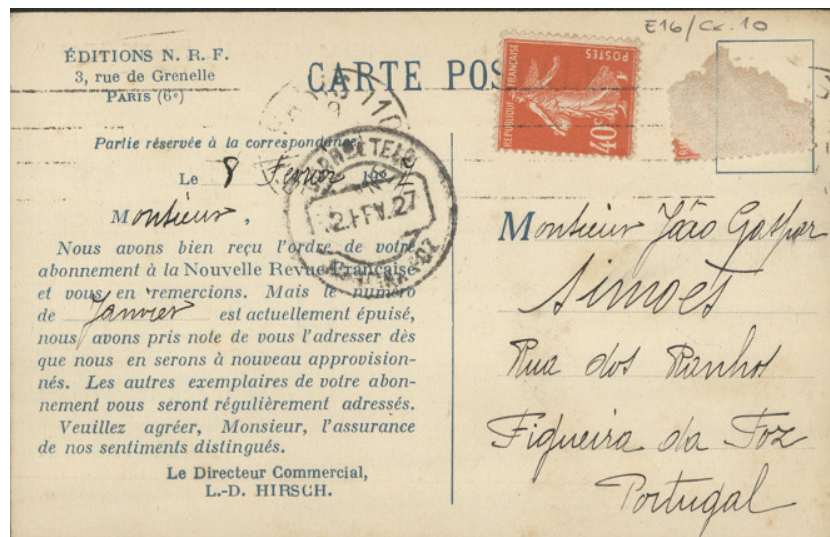 E16/Cx. 10
ÉDITIONS N. R. F.
3, rue de Grenelle
PARIS (6e)
CARTE POS
REPUBLIQUE FRANÇAISE
POSTES
40c
Partie réservée à la correspondance
Le 8 Février 1927
Monsieur,
Nous avons bien reçu l'ordre de votre
abonnement à la Nouvelle Revue Française
et vous en remercions. Mais le numéro
de Janvier est actuellement épuisé,
nous avons pris note de vous l'adresser dès
que nous en serons à nouveau approvision-
nés. Les autres exemplaires de votre abon-
nement vous seront régulièrement adressés.
Veuillez agréer, Monsieur, l'assurance
de nos sentiments distingués.
Le Directeur Commercial,
L.-D. HIRSCH.
FEV.27
Monsieur João Gaspar
Simoes
Rua dos Ranhos
Figueira da Foz
Portugal